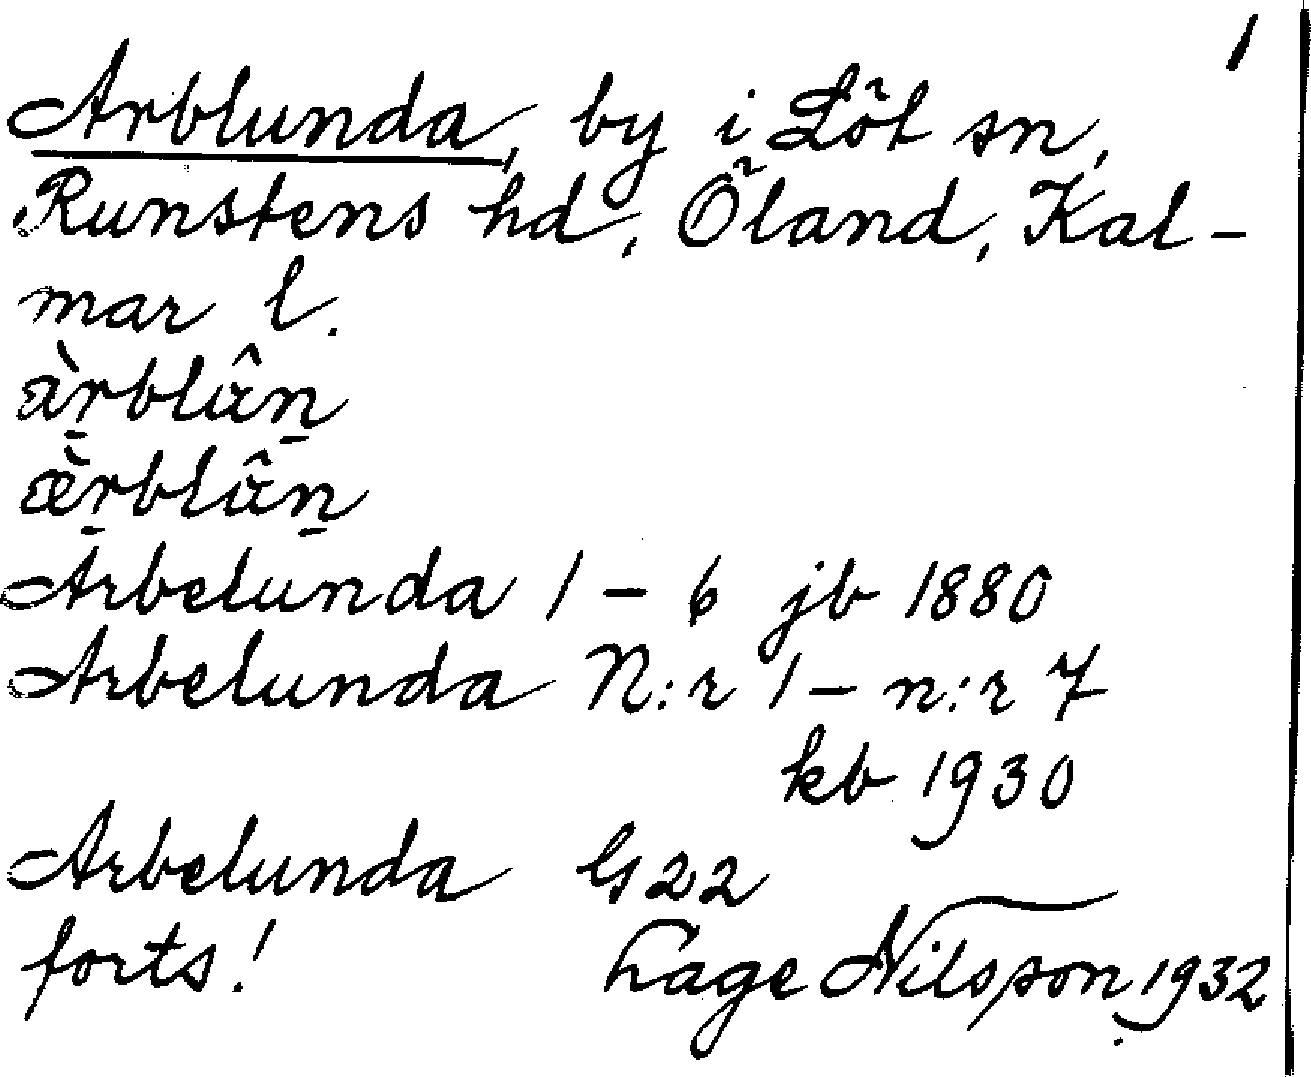 1
Arblunda, by i Löt sn,
Runstens hd, Öland, Kal-
mar l.
àr̠blân̠
æ̀r̠blân̠
Arbelunda 1 – 6 jb 1880
Arbelunda N:r 1 – n:r 7
kb 1930
Arbelunda G 22
forts! Lage Nilsson 1932